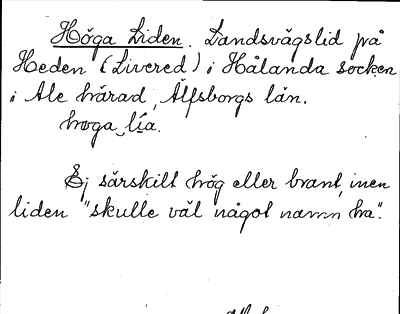 Höga Liden. Landsvägslid på
Heden (Livered) i Hålanda socken
i Ale härad, Älfsborgs län.
høga lía.
Ej särskilt hög eller brant, men
liden "skulle väl något namn ha".